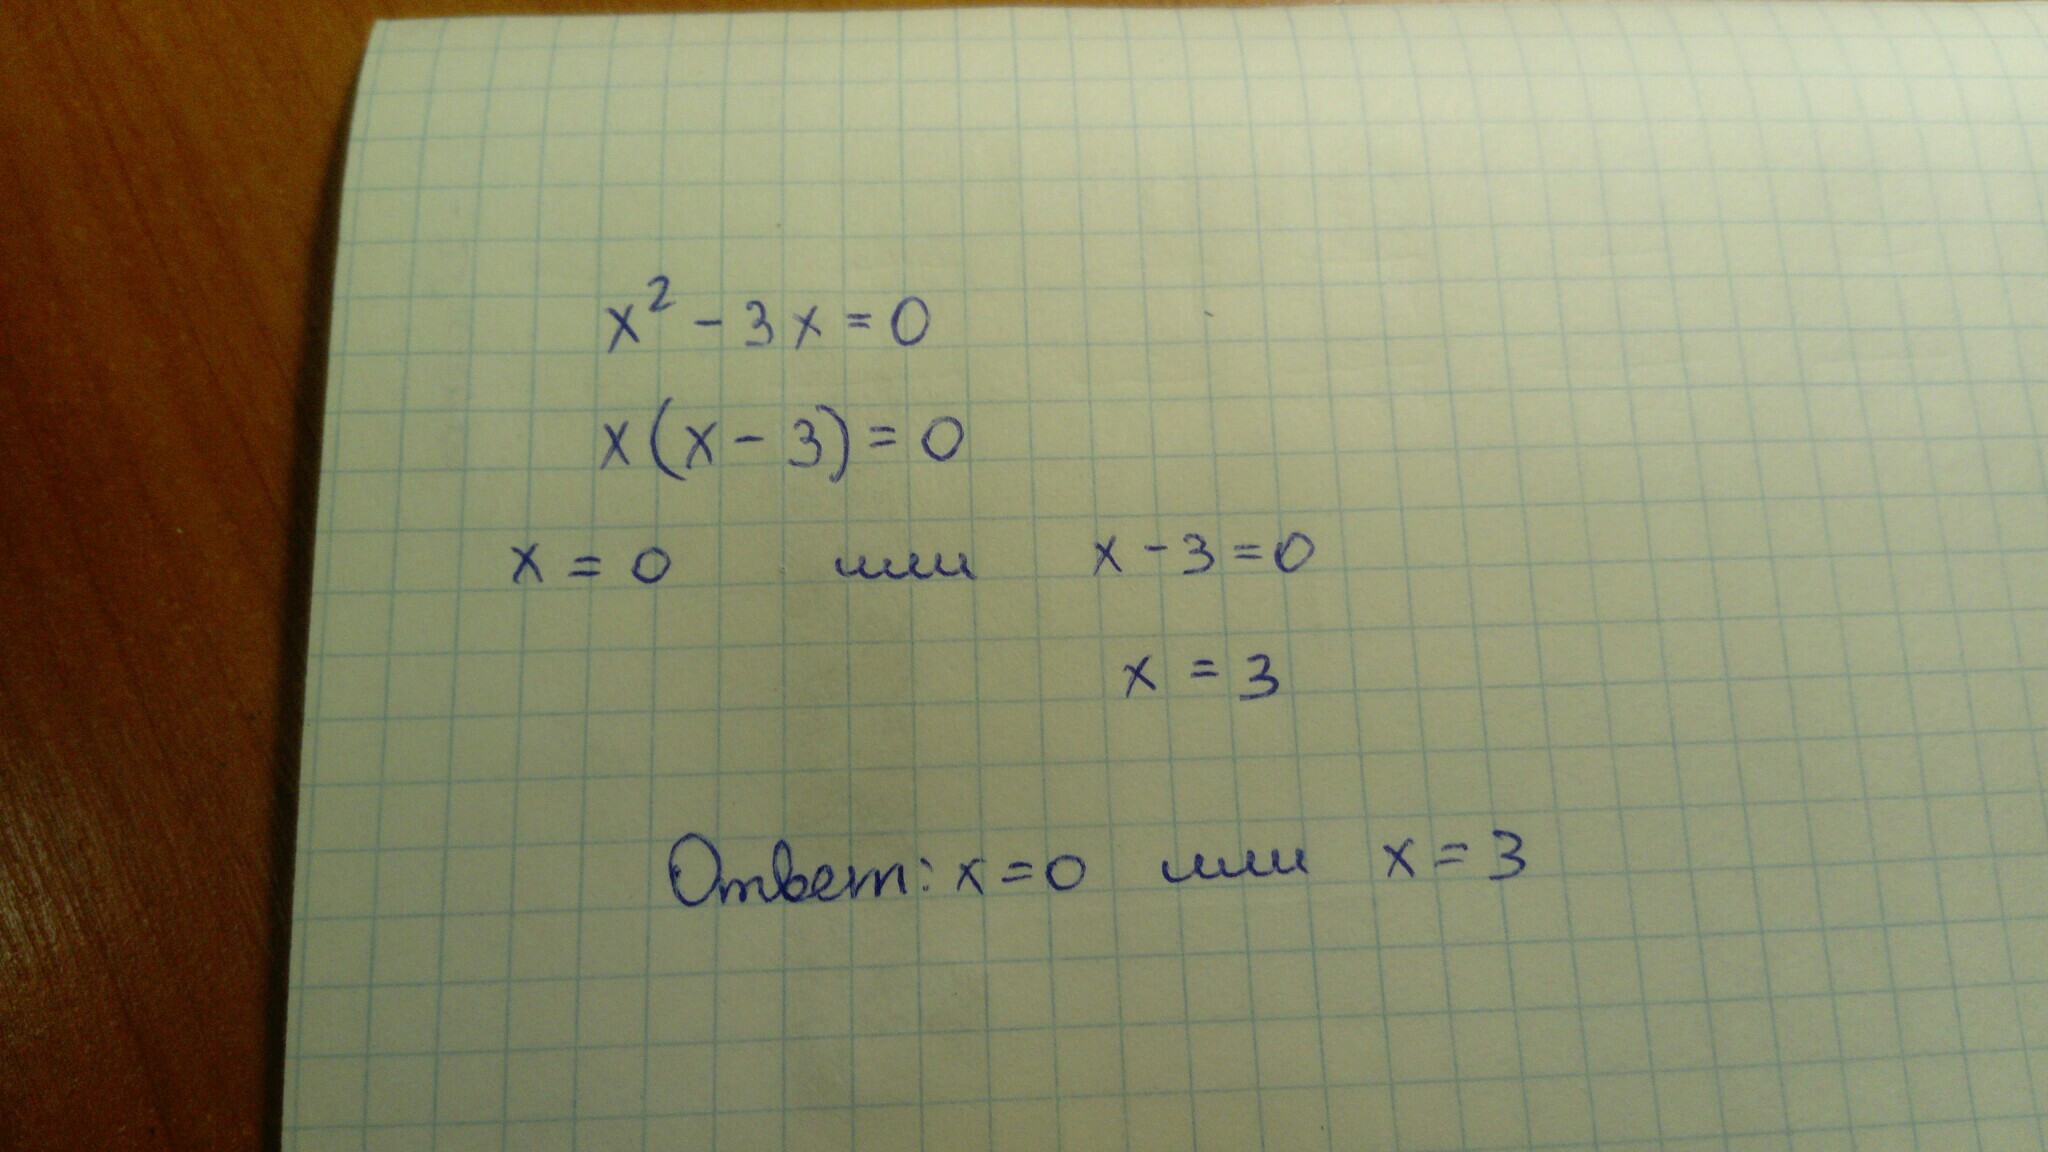 x² - 3x = 0
x(x - 3) = 0
x = 0 или x - 3 = 0
x = 3
Ответ: x = 0 или x = 3